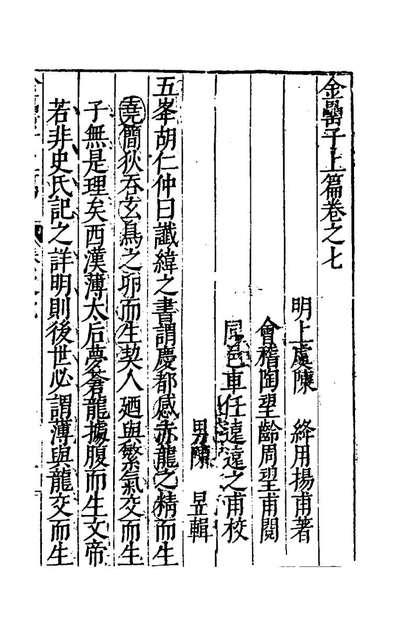 金罍子上篇卷之七
明上虞陳　絳用揚甫著
會稽陶望齡周望甫閱
同邑車任遠遠之甫校
男陳　昱輯
五峯胡仁仲曰讖緯之書謂慶都感赤龍之精而生
堯簡狄吞玄鳥之卵而生契人廼與繁氣交而生
子無是理矣西漢薄太后夢蒼龍據腹而生文帝
若非史氏記之詳明則後世必謂薄與龍交而生